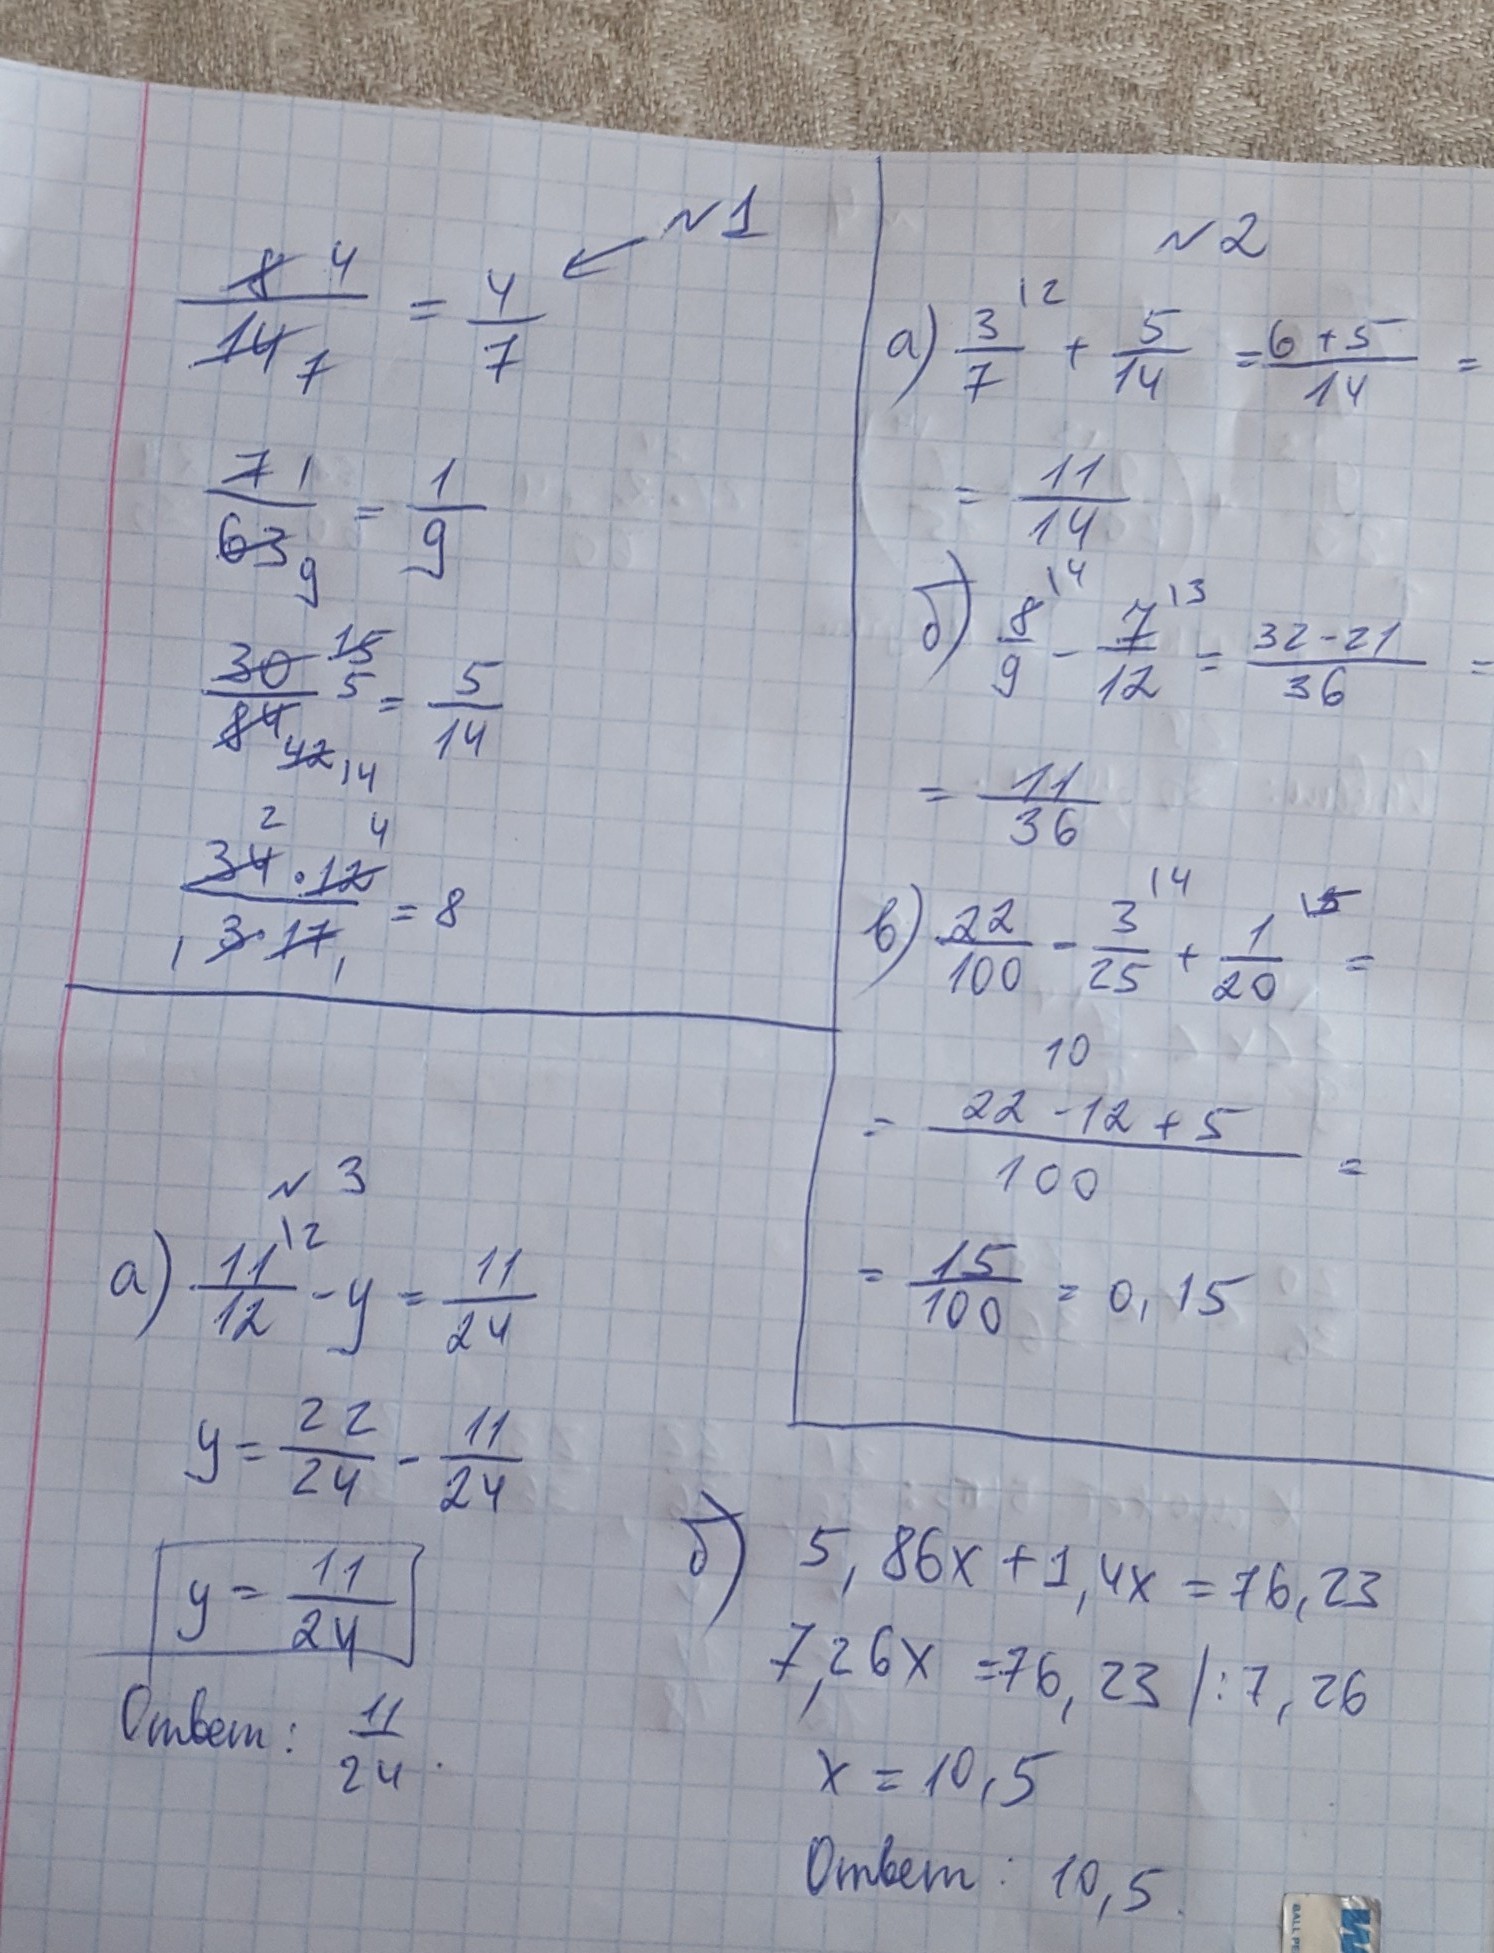 №1
8 4 / 14 7 = 4/7
7 1 / 63 9 = 1/9
30 15 5 / 84 42 14 = 5/14
2 4
34 · 12 / 3 · 17 = 8
1 1
№2
а) 3/7 \2 + 5/14 = 6+5/14 =
= 11/14
б) 8/9 \4 - 7/12 \3 = 32-21/36 =
= 11/36
в) 22/100 - 3/25 \4 + 1/20 \5 =
10
= 22-12+5/100 =
= 15/100 = 0,15
№3
а) 11/12 \2 - y = 11/24
y = 22/24 - 11/24
y = 11/24
Ответ: 11/24.
б) 5,86x + 1,4x = 76,23
7,26x = 76,23 |:7,26
x = 10,5
Ответ: 10,5.
BALL PE